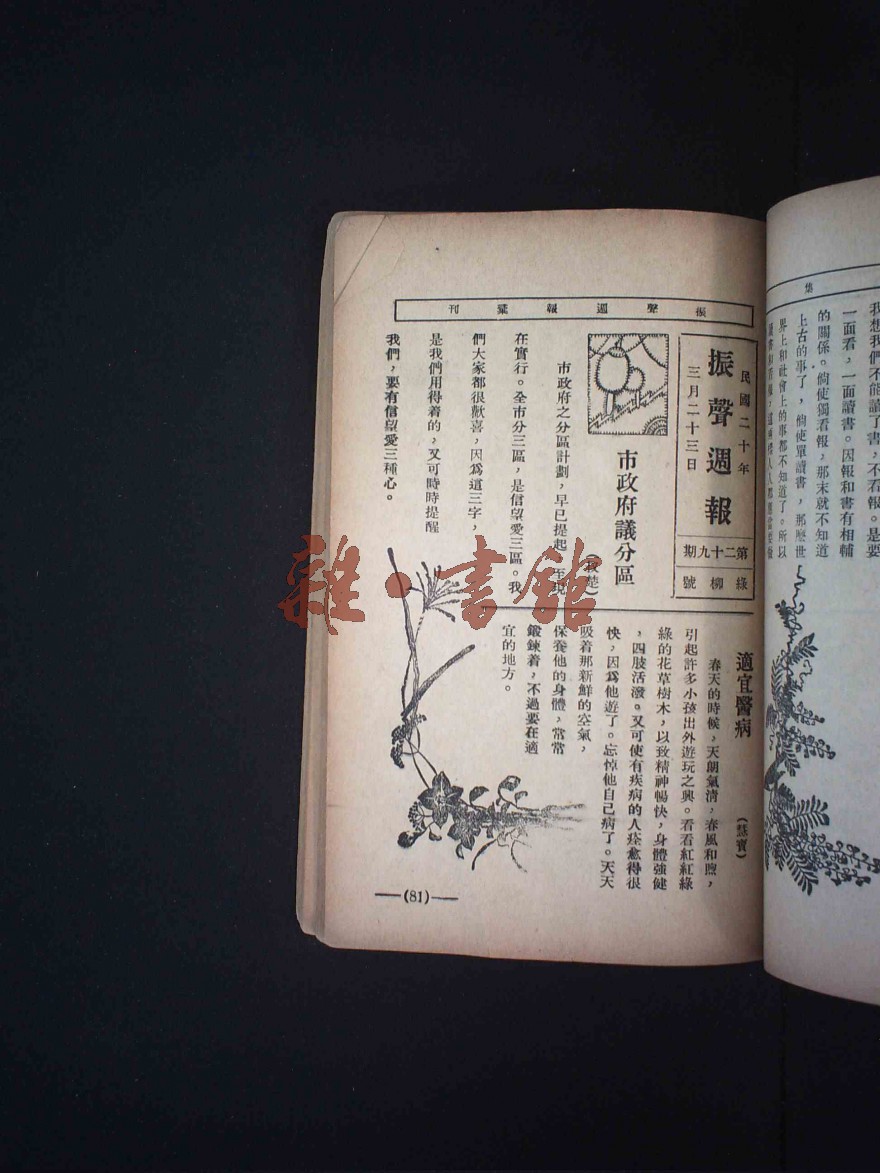 振聲週報彙刊
民國二十年
三月二十三日
振聲週報
第二十九期
綠柳號
市政府議分區
市政府之分區計劃，早已提起，至現
在實行。全市分三區，是信望愛三區。我
們大家都很歡喜，因爲這三字，
是我們用得着的，又可時時提醒
我們，要有信望愛三種心。
適宜醫病
（慧寶）
春天的時候，天朗氣清，春風和煦，
引起許多小孩出外遊玩之興。看看紅紅綠
綠的花草樹木，以致精神暢快，身體強健
，四肢活潑。又可使有疾病的人痊愈得很
快，因爲他遊了。忘悼他自己病了。天天
吸着那新鮮的空氣，
保養他的身體，常常
鍛鍊着，不過要在適
宜的地方。
(81)
集
我想我們不能讀了書，不看報。是要
一面看，一面讀書。因報和書有相輔
的關係。倘使獨看報，那末就不知道
上古的事了，倘使單讀書，那麽世
界上和社會上的事都不知道了。所以
雜·書館